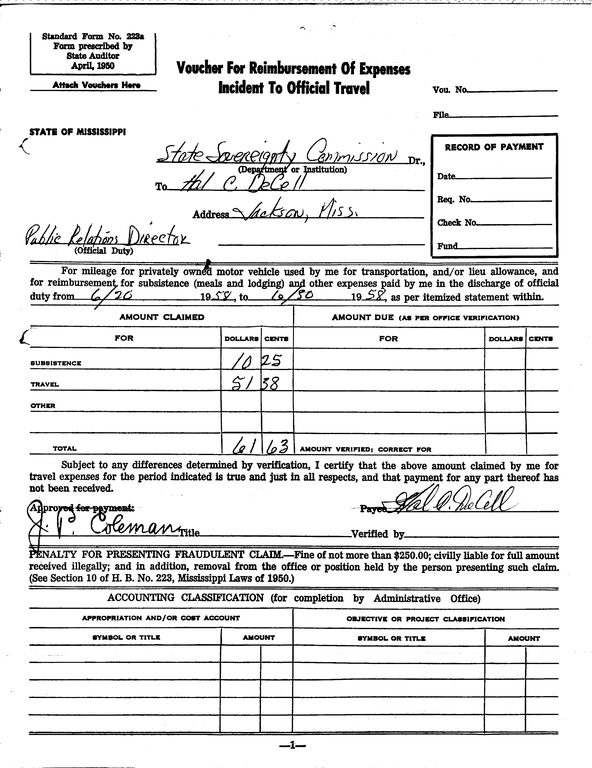 Standard Form No. 223a
Form prescribed by
State Auditor
April, 1950
Attach Vouchers Here
Voucher For Reimbursement Of Expenses
Incident To Official Travel
Vou. No.
File
STATE OF MISSISSIPPI
State Sovereignty Commission Dr.,
(Department or Institution)
To Hal C. DeCell
Address Jackson, Miss.
Public Relations Director
(Official Duty)
RECORD OF PAYMENT
Date
Req. No.
Check No.
Fund
For mileage for privately owned motor vehicle used by me for transportation, and/or lieu allowance, and
for reimbursement for subsistence (meals and lodging) and other expenses paid by me in the discharge of official
duty from 6/20 1958, to 6/30 1958, as per itemized statement within.
AMOUNT CLAIMED AMOUNT DUE (AS PER OFFICE VERIFICATION)
FOR DOLLARS CENTS FOR DOLLARS CENTS
SUBSISTENCE 10 25
TRAVEL 51 38
OTHER
TOTAL 61 63 AMOUNT VERIFIED; CORRECT FOR
Subject to any differences determined by verification, I certify that the above amount claimed by me for
travel expenses for the period indicated is true and just in all respects, and that payment for any part thereof has
not been received.
Approved for payment: Payee Hal C. DeCell
J. P. Coleman Title Verified by
PENALTY FOR PRESENTING FRAUDULENT CLAIM.—Fine of not more than $250.00; civilly liable for full amount
received illegally; and in addition, removal from the office or position held by the person presenting such claim.
(See Section 10 of H. B. No. 223, Mississippi Laws of 1950.)
ACCOUNTING CLASSIFICATION (for completion by Administrative Office)
APPROPRIATION AND/OR COST ACCOUNT OBJECTIVE OR PROJECT CLASSIFICATION
SYMBOL OR TITLE AMOUNT SYMBOL OR TITLE AMOUNT
—1—